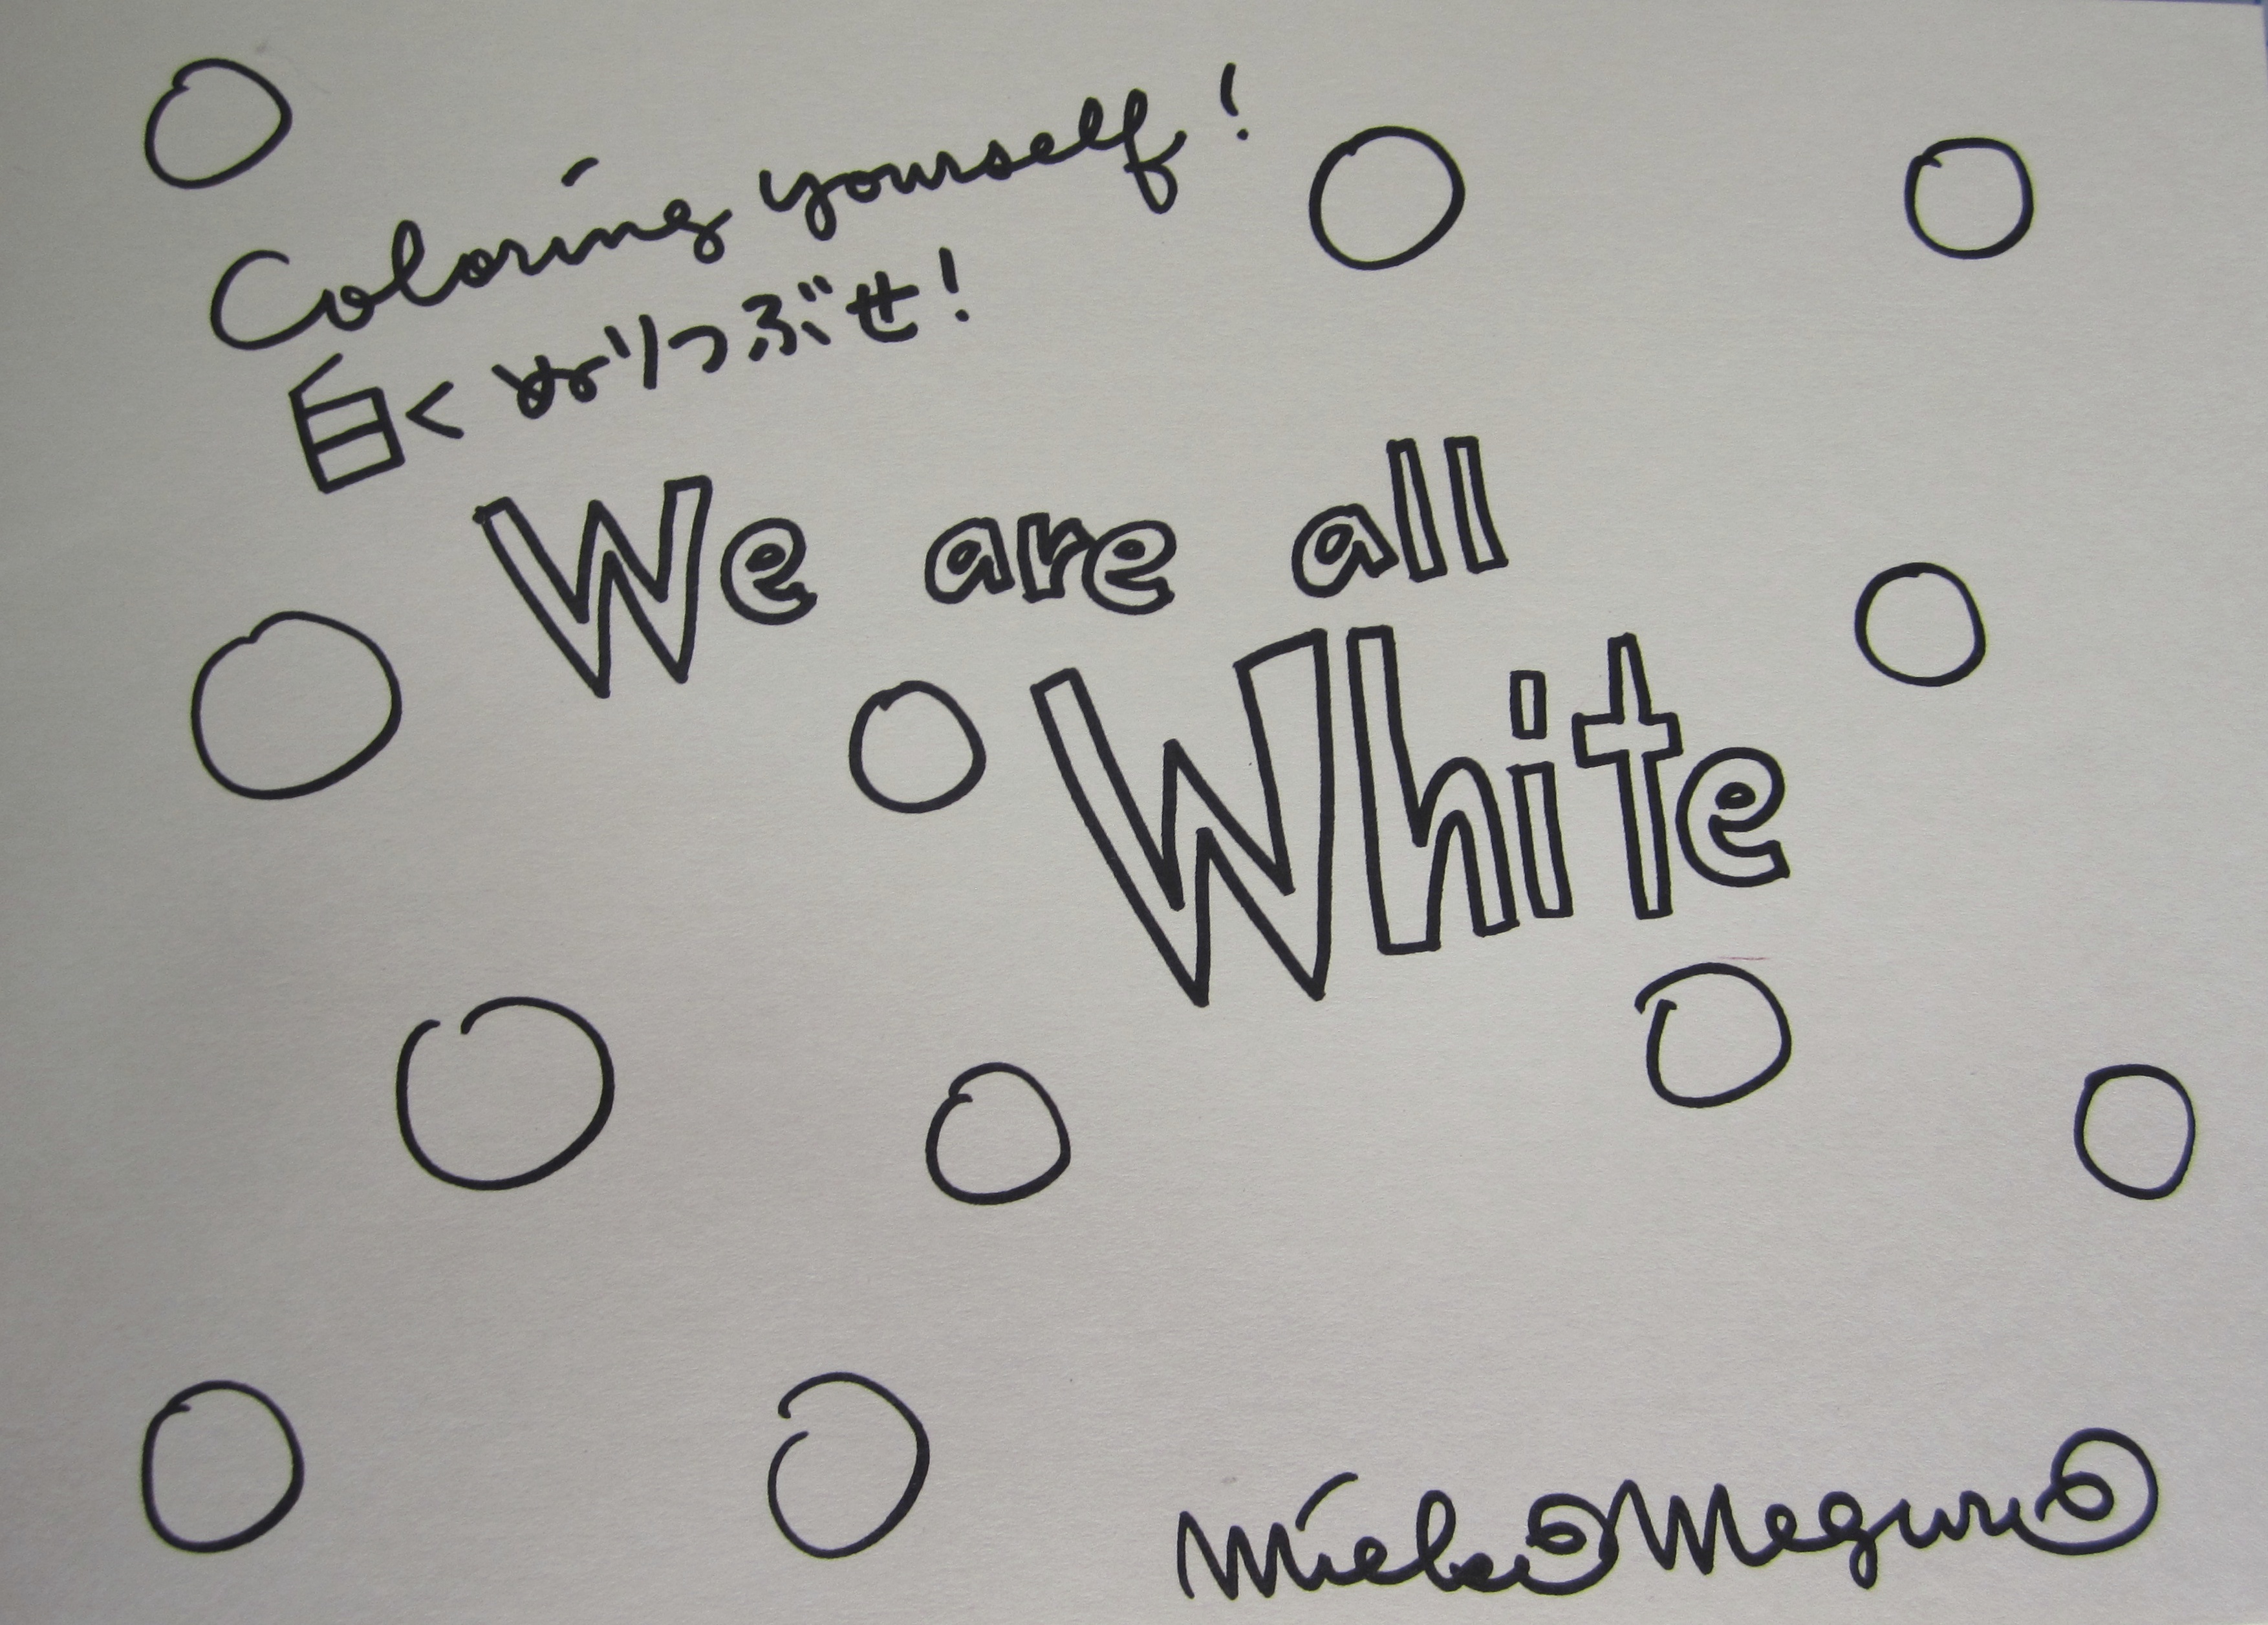 Coloring yourself!
白くぬりつぶせ!
We are all
White
Mieko Meguro